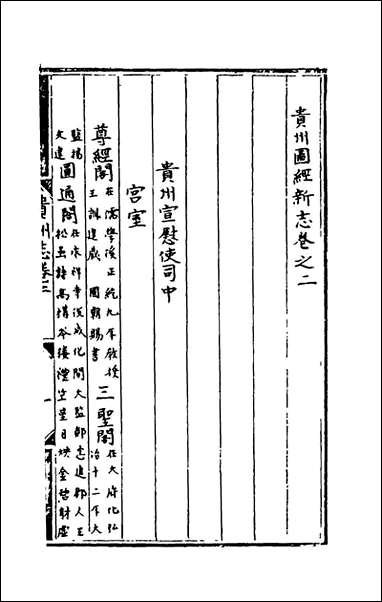 貴州圖經新志卷之二
貴州宣慰使司中
宮室
尊經閣 在儒學後正統九年教授
王訓建藏 國朝賜書
三聖閣 在大府化弘
治十二年太
監楊
建
圓通閣 在永祥寺後成化間太監鄭忠建郡人王
詩高構 空星日映金 財虛
貴州志卷二
一